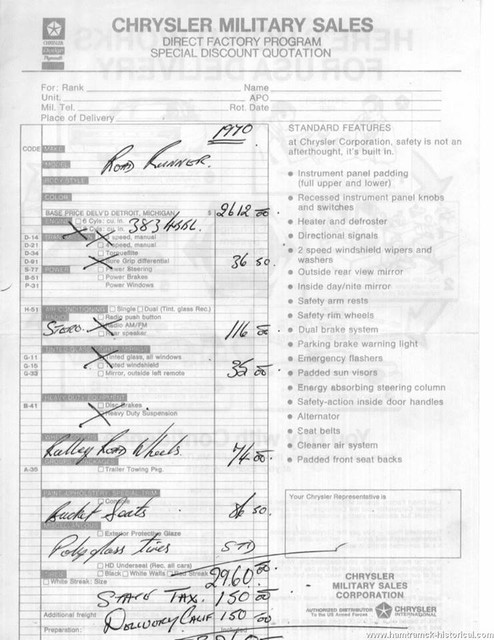 CHRYSLER
Dodge
Plymouth
CHRYSLER MILITARY SALES
DIRECT FACTORY PROGRAM
SPECIAL DISCOUNT QUOTATION
For: Rank Name
Unit: APO
Mil. Tel. Rot. Date
Place of Delivery
1970
CODE
ROAD RUNNER
COLOR
BASE PRICE DELV'D DETROIT, MICHIGAN $ 2612 00
6 Cyls: cu. in.
8 Cyls: cu. in. 383
D-14 speed, manual
D-21 4 speed, manual
D-34 Torqueflite
D-91 Sure Grip differential 36 50
S-77 POWER Power Steering
B-51 Power Brakes
P-31 Power Windows
H-51 Single Dual (Tint. glass Req.)
Radio push button
STEREO Radio AM/FM 116 00
Rear speaker
G-11 Tinted glass, all windows
G-15 Tinted windshield 35 00
G-33 Mirror, outside left remote
B-41 Disc Brakes
Heavy Duty Suspension
Ralley Road Wheels 74 00
A-35 Trailer Towing Pkg.
Bucket Seats 86 50
Exterior Protective Glaze
Polyglass tires STD
HD Underseal (Rec. all cars)
Black White Walls Red Streak
White Streak: Size 2960 00
STATE TAX. 150 00
Additional freight DELIVERY CALIF 150 00
Preparation:
STANDARD FEATURES
at Chrysler Corporation, safety is not an
afterthought, it's built in.
• Instrument panel padding
(full upper and lower)
• Recessed instrument panel knobs
and switches
• Heater and defroster
• Directional signals
• 2 speed windshield wipers and
washers
• Outside rear view mirror
• Inside day/nite mirror
• Safety arm rests
• Safety rim wheels
• Dual brake system
• Parking brake warning light
• Emergency flashers
• Padded sun visors
• Energy absorbing steering column
• Safety-action inside door handles
• Alternator
• Seat belts
• Cleaner air system
• Padded front seat backs
Your Chrysler Representative is
CHRYSLER
MILITARY SALES
CORPORATION
AUTHORIZED DISTRIBUTOR
To the US Armed Forces
CHRYSLER
INTERNATIONAL
www.hamtramck-historical.com